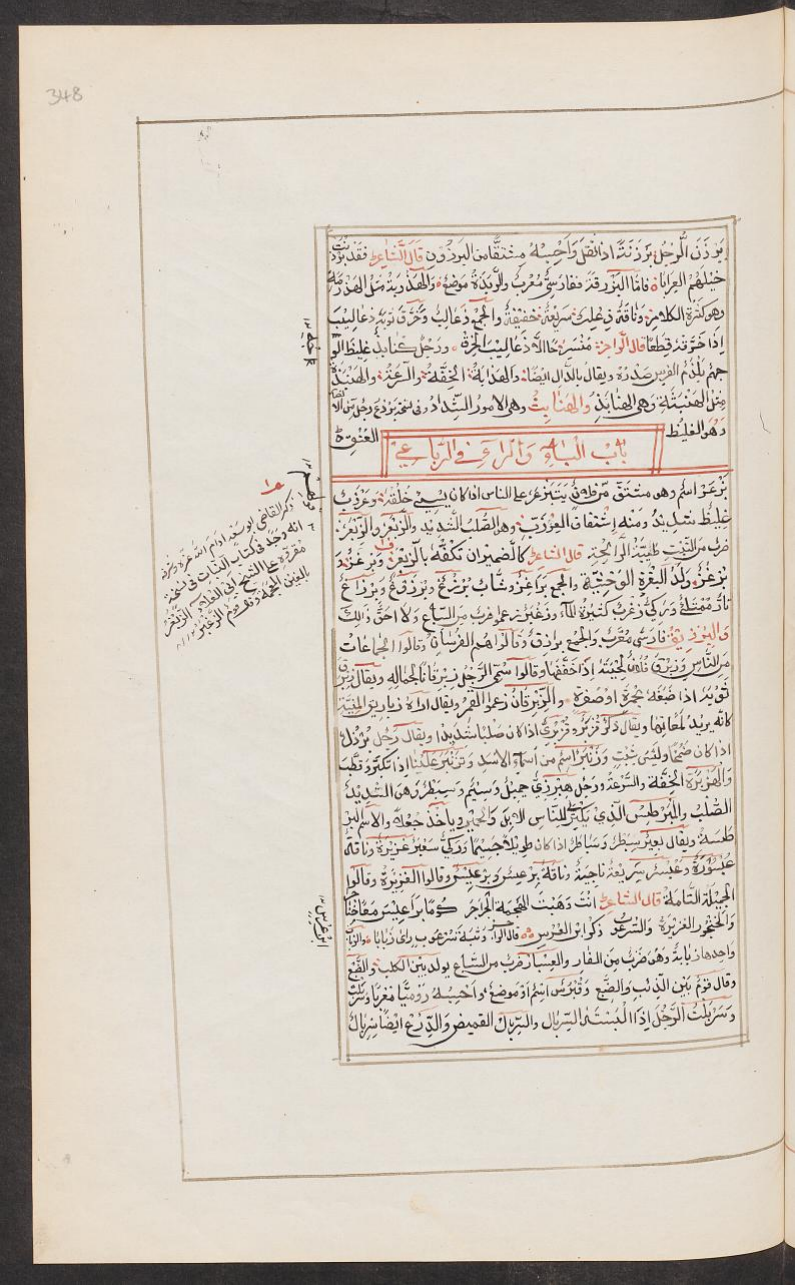 348
بَرْذَنَ الرجل بَرْذَنَةً اذا ثقل وَاَحْسِبُهُ مشتقًّا من البرذون قَالَ الشَّاعِرُ فقد بَرْذَنَتْ
خيلهم العرابا فامّا البَزْرقة ففارسىٌّ مُعْرَبٌ والرَّبذة موضع والهَذْرَبَة مثل الهَذْرمة
وهو كثرة الكلام وناقة ذِعْلِبَة سريعة خفيفة والجمع ذَعَالِبُ وخَرَّقَ ثوبه ذعَاليب
اِذا خَرَّقه قِطَعًا قال الراجز مُنْسَرِحًا الّا ذَعَاليب الخِرَقْ ورجل كُنابِذٌ غليظ الو
جهم ويقال بالدال ايضًا والهَذابة الخِفّة والسُّرْعة والهنبذة
مثل الهَنْبَثَة وهى الهنابذ والهنابث وهى الامور الشِّدادُ وفى نسخة
وهو الغليظ العُنق
بَابُ البَاءِ وَالراءِ فى الرّباعىّ
بَزْعَرٌ اسمٌ وهو مشتق من قولهم يتبزعر على الناس اذا كان يسىء خلقه وعَرْزَبٌ
غليظ شديد ومنه اشتقاق العَرْزَبِّ وهو الصُّلْب الشَّديد والزَّبْعَر والزَّبْعَرُ
ضربٌ من النَّبت طيّبة الرائحة قال الشاعر كالضيمران تلُفُّه بالزبعر وبرغز و
بُرْغُزٌ ولدُ البقرة الوحشيّة والجمع بَرَاغِزُ وشابٌّ بُرْزُغٌ وبرزوغ وبِرْزَاغٌ
تارٌّ ممتلئٌ وركىٌّ زَغْرَبٌ كثيرة الماء وزغبر زعموا ضربٌ من السِّباع ولا احقّ ذالك
وَالبرزيق فارسى معَرَّب والجمع برازق وقالوا هم الفرسان وقالوا الجماعات
من الناس وزبرق فلان لحيته اذا خفّفها وقالوا سُمّى الرجل زِبْرِقانًا لجماله ويقال زبرق
ثوبه اذا صبغه بحمرة او صفرة والزِّبرقان زعموا القمر ويقال اراه زباريق المنيّة
كانّه يريد لمعانها ويقال ذَكَرٌ قُزْبُرٌ وقُزْبُرىٌّ اذا كان صلبًا شديدًا ويقال رجل بُرْزُلٌ
اذا كان ضخمًا وليس بثبت وزنبر اسم من اسماء الاسد وتزنبر علينا اذا تكبّر وقطّب
والهزبرة الخفّة والسرعة ورجل هِبْرِزىٌّ جميل وسيم وسِبَطْرٌ وهو الشديد
الصُّلب والمُبَرطِس الّذى يكترى للناس الابل والحمير ويأخذ جُعْلَهُ والاسم البَرْ
طَسَة ويقال بعير سِبَطْر وسُباطِر اذا كان طويلاً جسيمًا وركىٌّ سَعْبَر غزيرة وناقة
عُبْسُورَة وعُبْسُر سريعة ناجية وناقة بِرْعيس وبِرْعيس وقالوا الغزيرة وقالوا
الجميلة التامة قال الشاعر انت وهبت الهجمة الجراجر كومًا براعيس معًا خناجر
والخنجور الغزيرة والسرعوب ذكر ابن العرس قال الراجز وثبة سرعوب راى زبابا والزباب
واحدها زبابة وهو ضرب من الفار والعِسبار ضرب من السباع يولد بين الكلب والضبع
وقال قوم بين الذئب والضبع وقبرس اسم او موضع واحسبه روميًّا معربا وسربلت
وسربلت الرَّجُلَ اِذا البسته السِّربال والسِّربال القميص والدِّرْع ايضًا سِربال
ابن عرس
ذكر القاضى ابو سعيد ادام الله عزه
انه وجد فى كتاب النبات فى نسخة
مقروءة على الشيخ ابى العلاء الزبغر
بالغين المعجمة